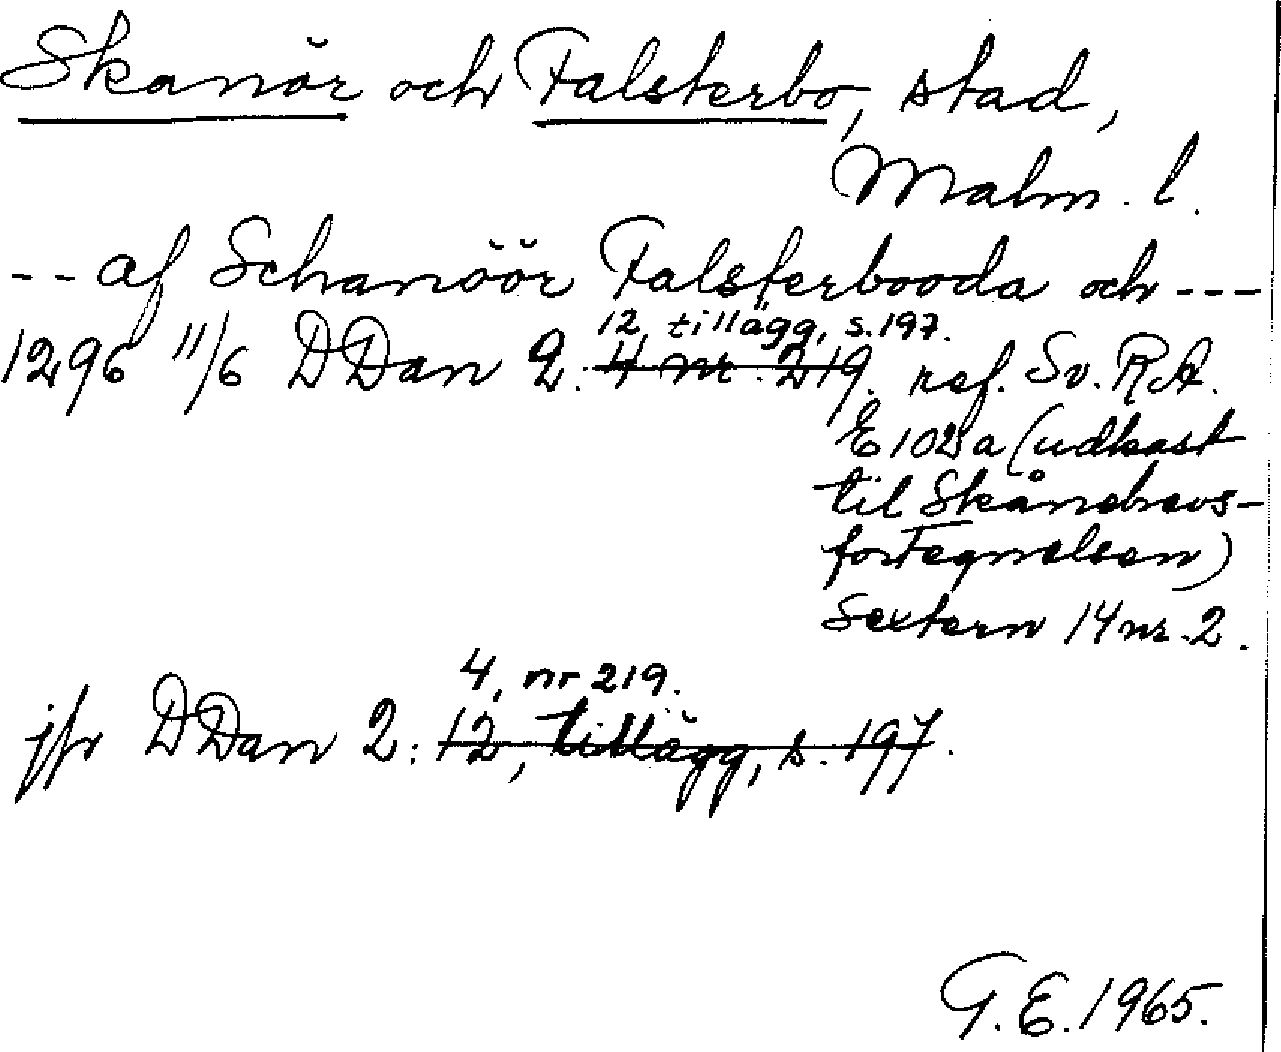 Skanör och Falsterbo, stad,
Malm. l.
-- af Schanöör Falsterbooda och ---
12, tillägg, s. 197.
1296 11/6 DDan 2. 4 nr. 219. ref. Sv. R.A.
E 102a (udkast
til Skånebrevs-
fortegnelsen)
Sextern 14 nr. 2.
4, nr 219.
jfr DDan 2: 12, tillägg, s. 197.
G.E. 1965.